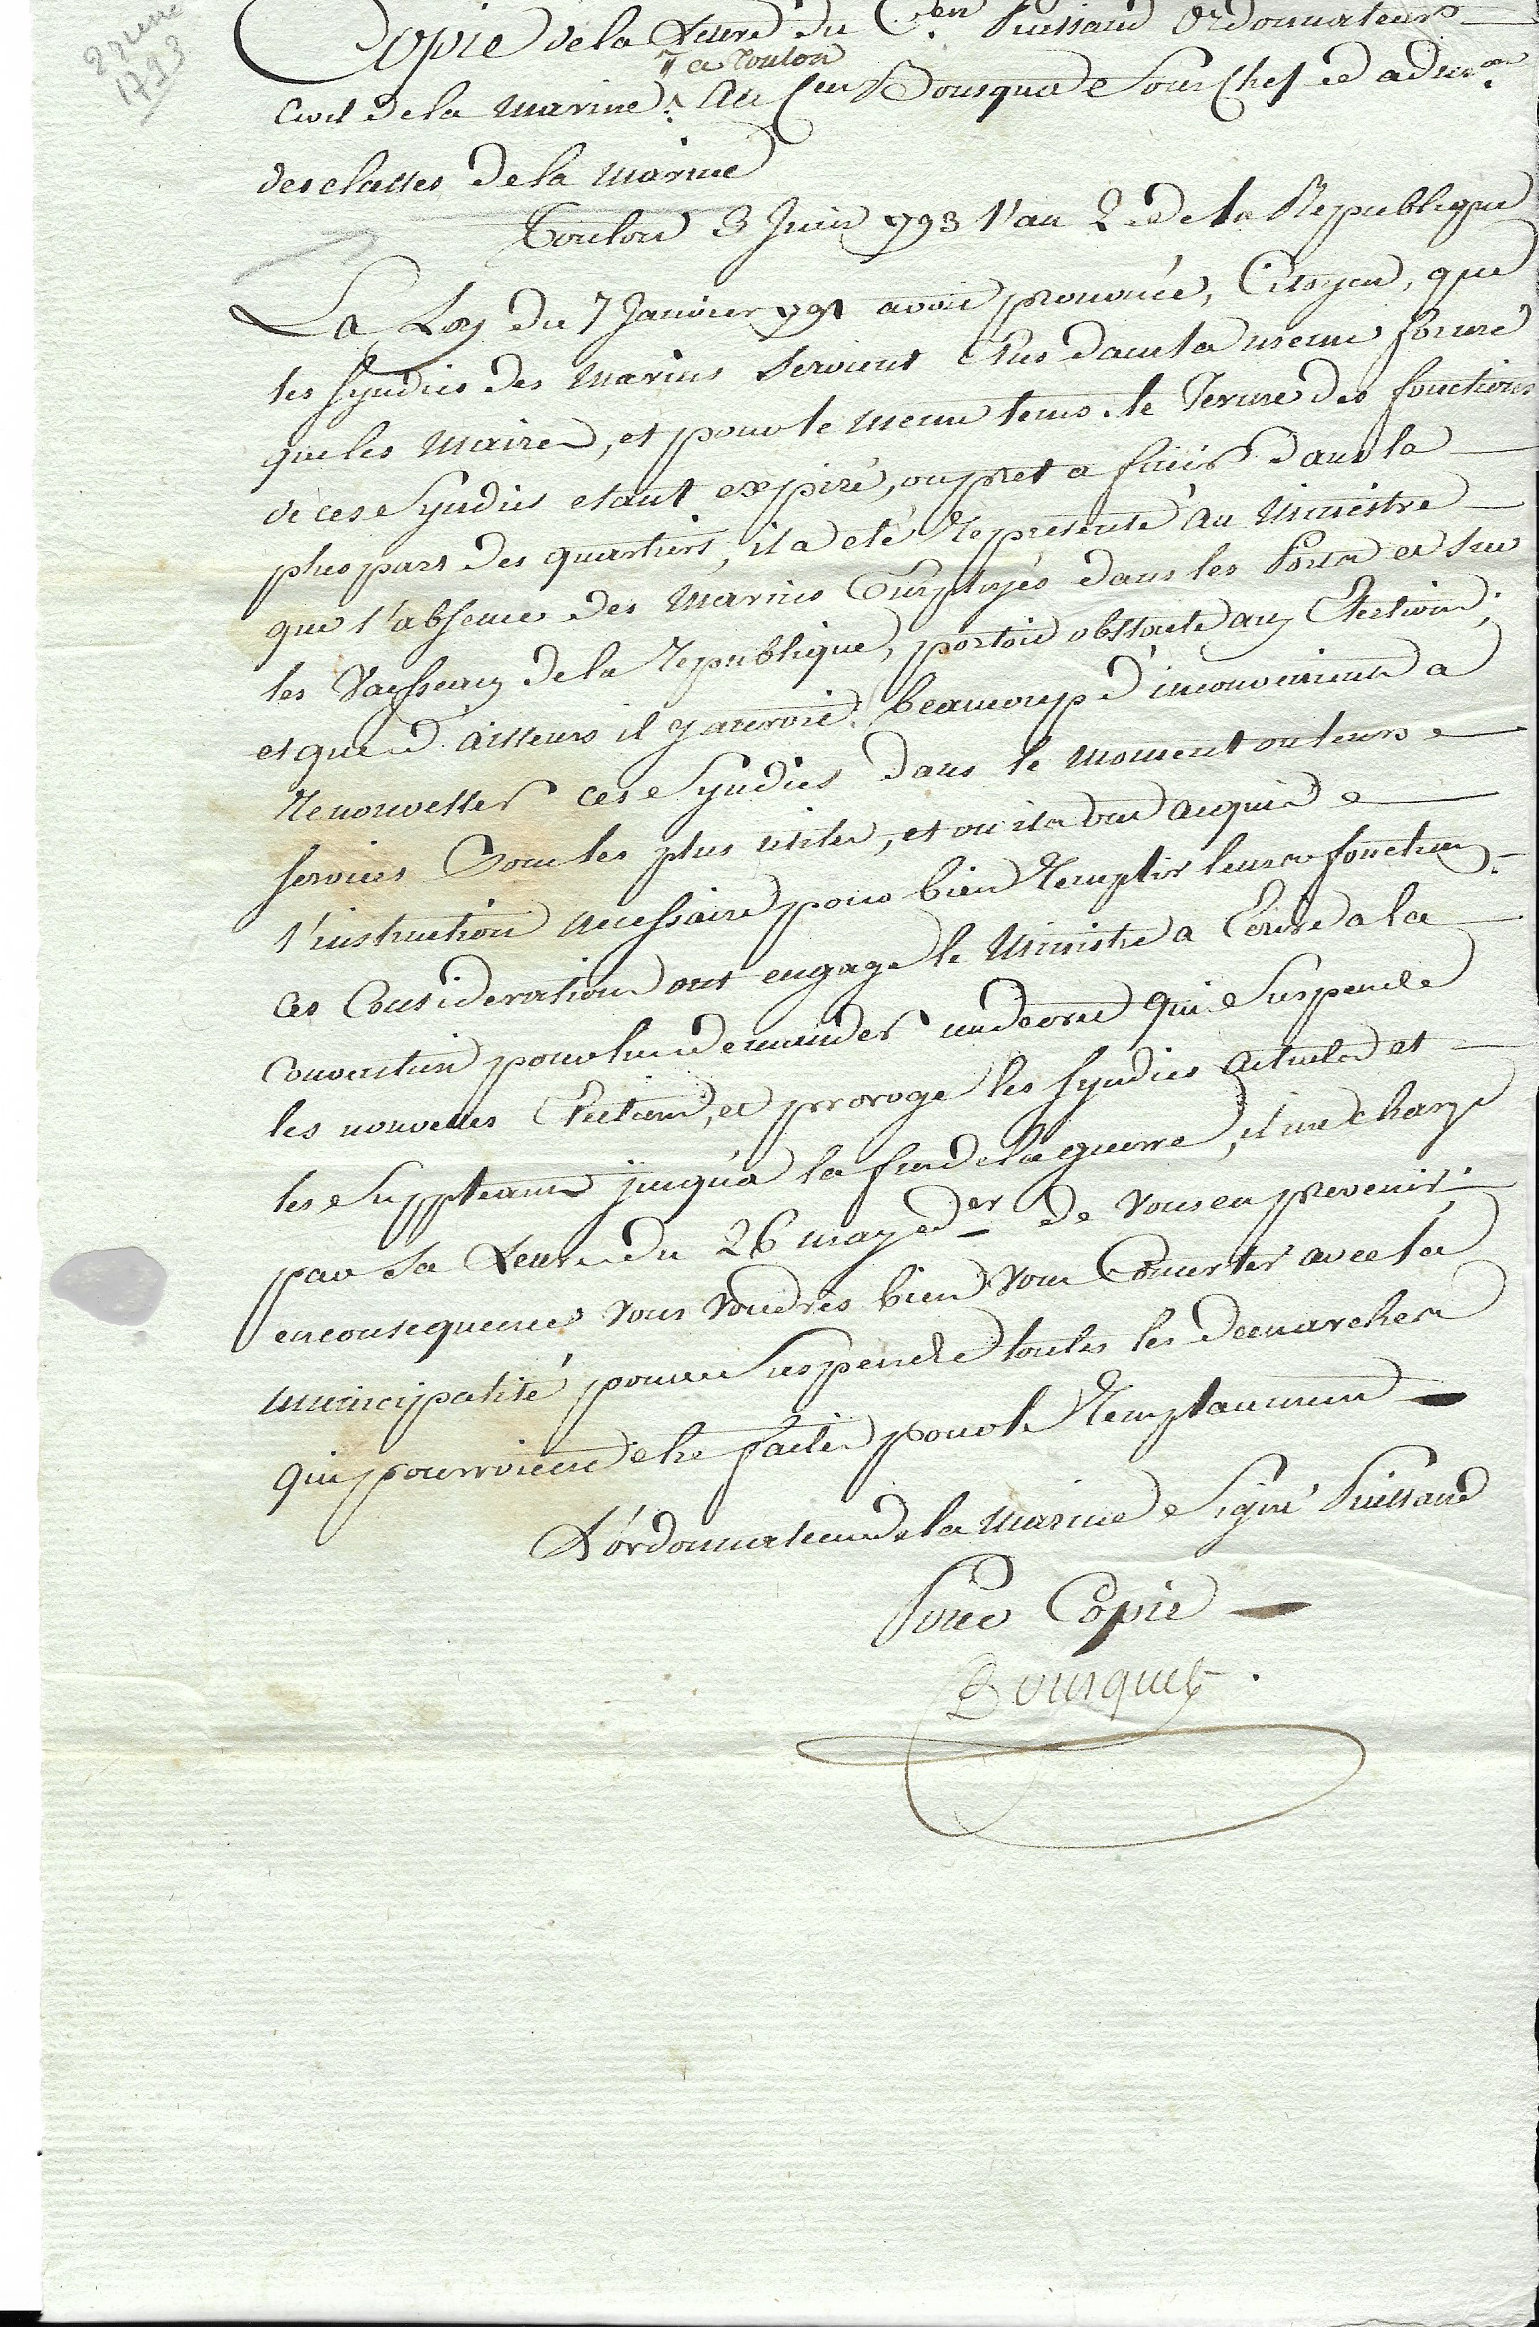 2 juin
1793
Copie de la Lettre du C.en Puissand Ordonnateur
à Toulon
Civil de la Marine. Au C.en Bousquet Sous Chef d'adm.on
des classes de la Marine
Toulon 3 Juin 1793 l'an 2.d de la Republique
La Loy du 7 Janvier 1791 avoit prononcé, Citoyen, que
les Syndics des Marins seroient élus dans la meme forme
que les Maires, et pour le meme tems. le Terme des fonctions
de ces Syndics etant expiré, ou pret a finir dans la
plus part des quartiers, il a eté Representé au Ministre
que l'absence des Marins Employés dans les Ports et sur
les Vaisseaux de la Republique, portoit obstacle aux Elections;
et que d'ailleurs il y auroit beaucoup d'inconvenients a
Renouveller ces Syndics dans le moment ou leurs
services sont les plus utiles, et ou ils ont acquis
l'instruction necessaire pour bien Remplir leurs fonctions.
Ces Considerations ont engagé le Ministre a Ecrire a la
Convention pour lui demander un decret qui Suspende
les nouvelles Elections, et proroge les Syndics actuels et
les Suppleans jusqu'a la fin de la guerre, il me charge
par sa Lettre du 26 may d.er de vous en prevenir;
en consequence vous voudrés bien vous Concerter avec la
municipalité pour Suspendre toutes les demarches
qui pourroient etre faites pour le Remplacement
L'ordonnateur de la Marine Signé Puissand
Pour Copie
Bousquet.